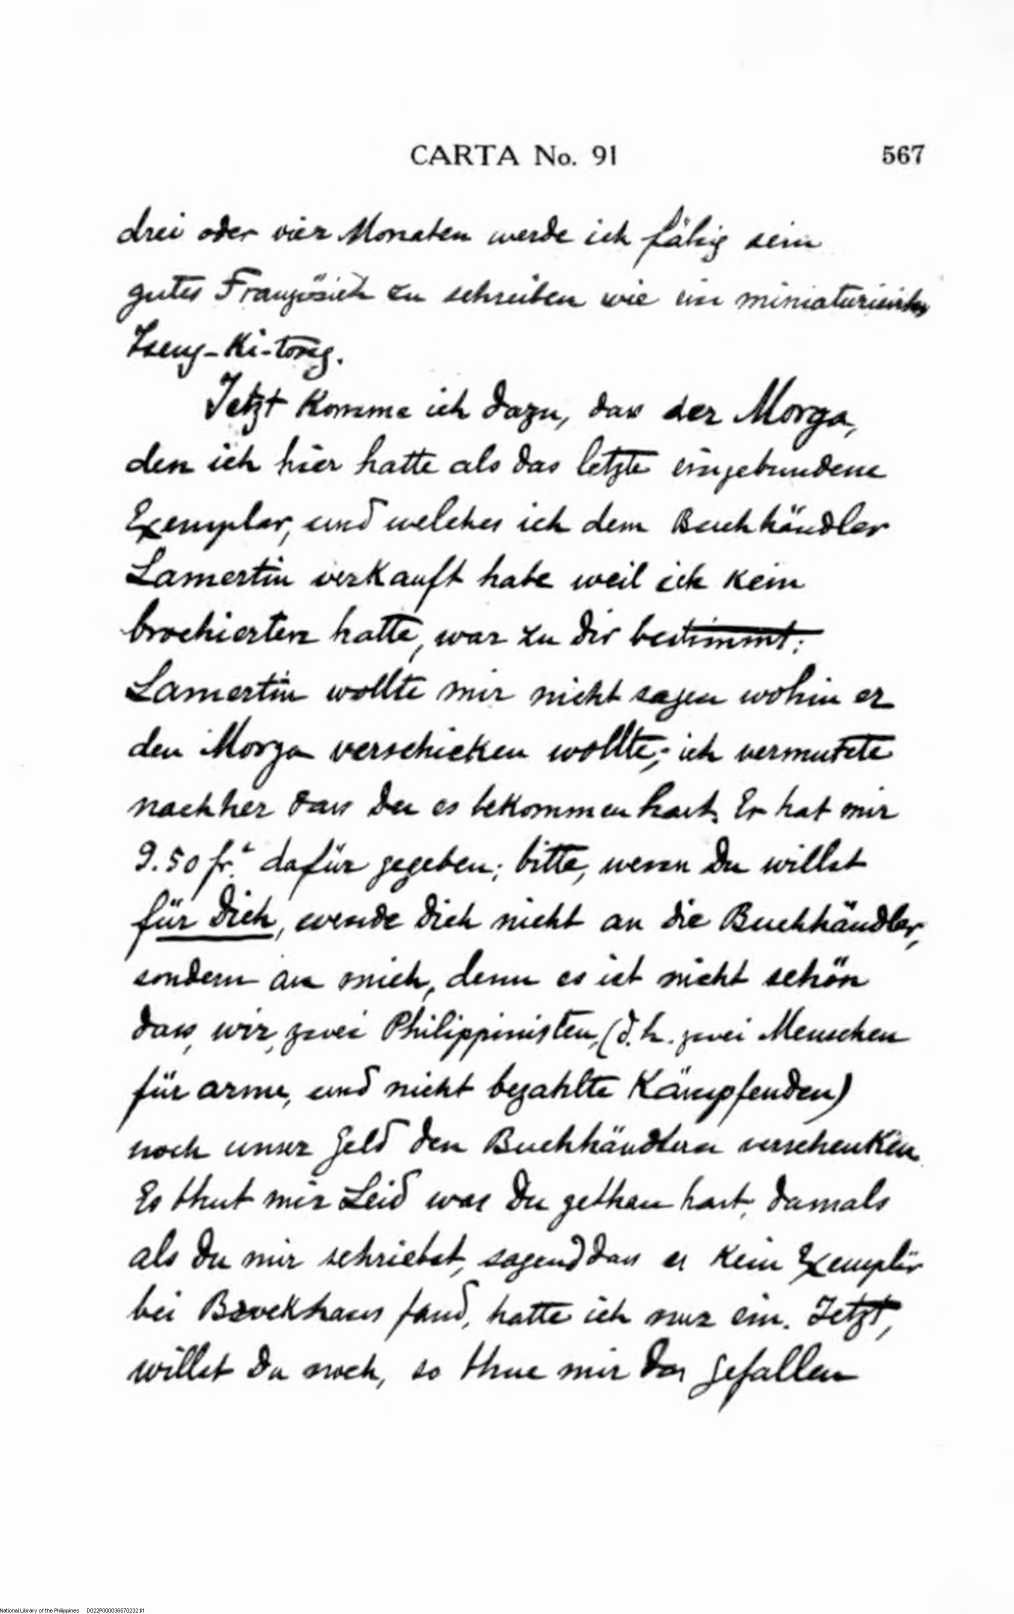 CARTA No. 91 567
drei oder vier Monaten werde ich fähig sein
gutes Französich zu schreiben wie ein
Tseng-Ki-tong.
Jetzt komme ich dazu, dass der Morga,
den ich hier hatte als das letzte eingebundene
Exemplar, und welches ich dem Buchhändler
Lamertin verkauft habe weil ich kein
brochierten hatte, war zu Dir bestimmt;
Lamertin wollte mir nicht sagen wohin er
den Morga verschicken wollte; ich vermutete
nachher dass Du es bekommen hast. Er hat mir
9.50 fr. dafür gegeben; bitte, wenn Du willst
für Dich, wende Dich nicht an die Buchhändler,
sondern an mich, denn es ist nicht schön
dass, wir, zwei Philippinisten, (d. h. zwei Menschen
für arme, und nicht bezahlte Kämpfenden)
noch unser Geld den Buchhändlern verschenken.
Es thut mir Leid was Du gethan hast, damals
als Du mir schriebst, sagend dass er kein Exemplar
bei Brockhaus fand, hatte ich nur ein. Jetzt,
willst Du noch, so thue mir das Gefallen
National Library of the Philippines